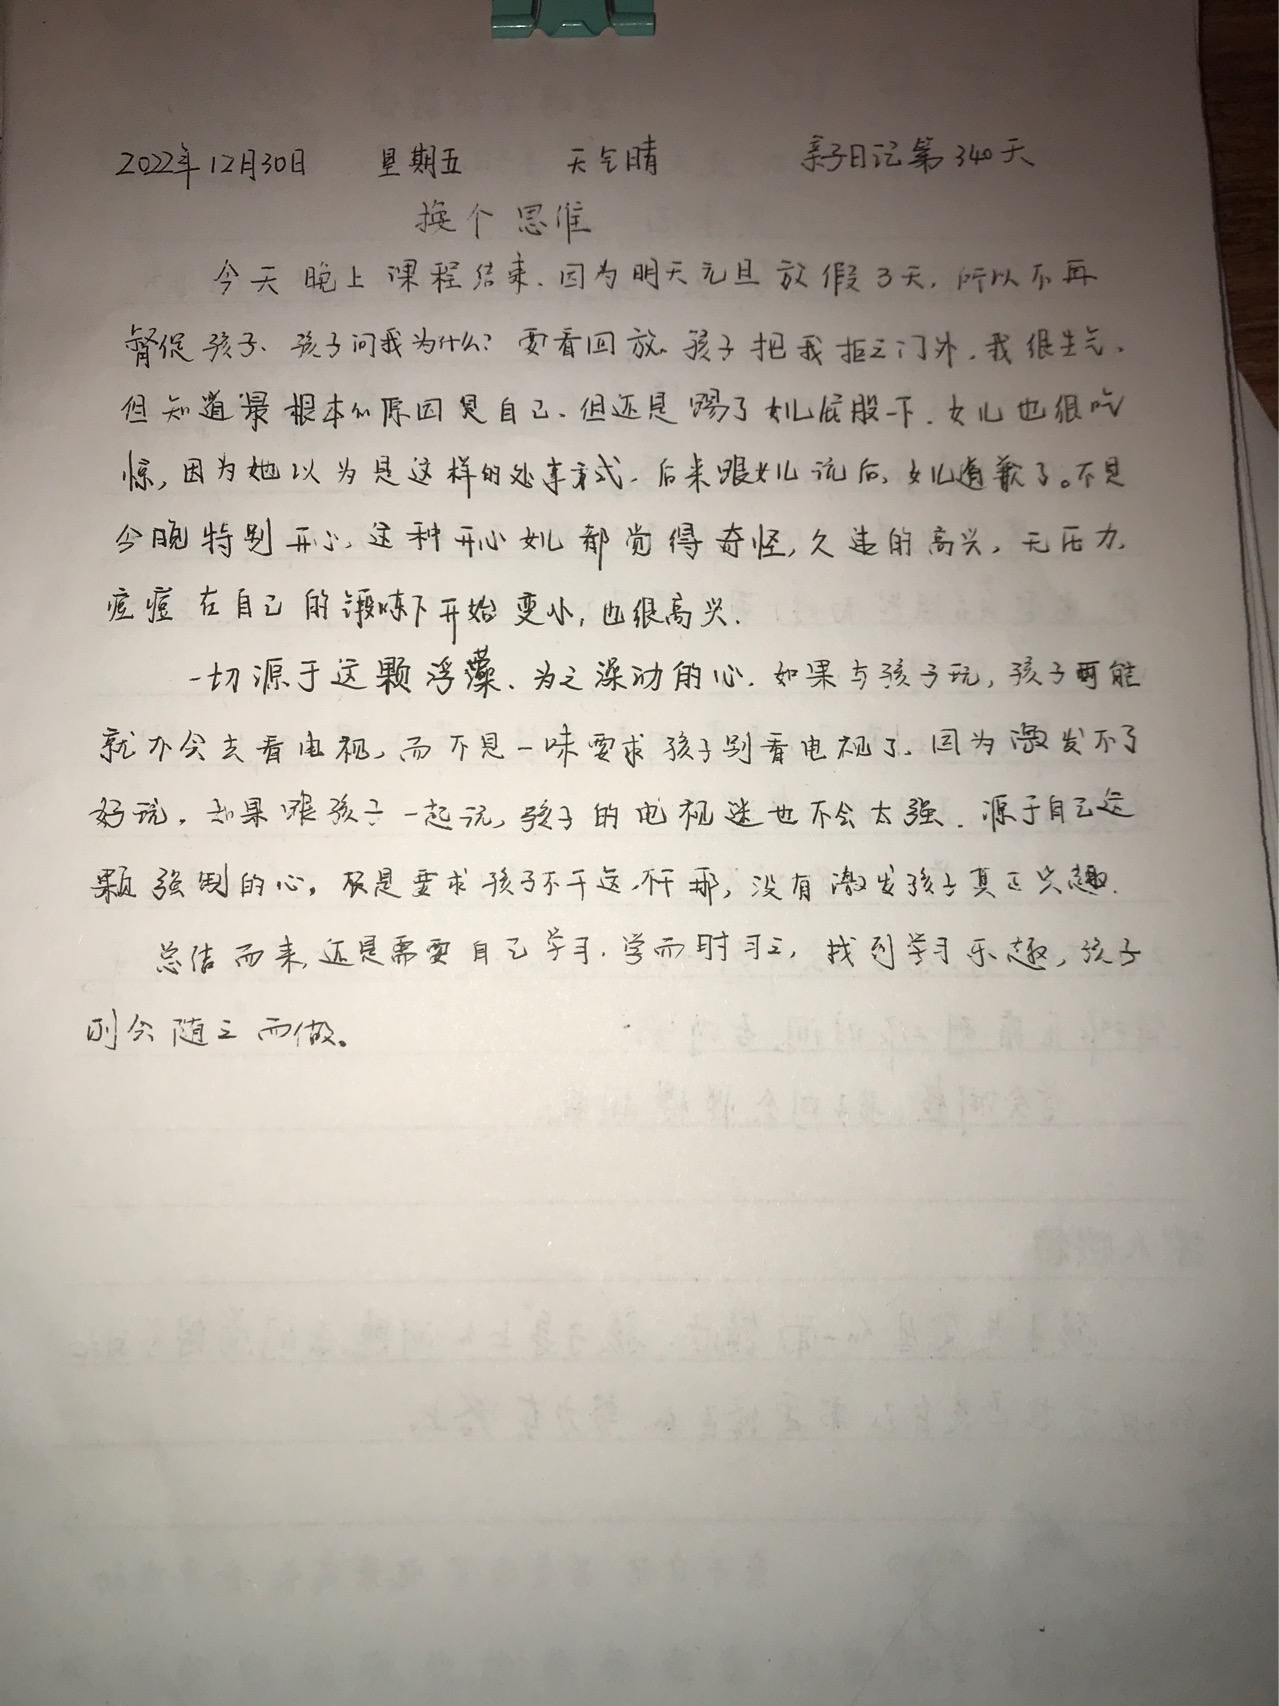 2022年12月30日 星期五 天气晴 亲子日记第340天
换个思维
今天晚上课程结束.因为明天元旦放假3天,所以不再
督促孩子、孩子问我为什么?要看回放.孩子把我拒之门外.我很生气.
但知道最根本的原因是自己.但还是踢了女儿屁股一下.女儿也很吃
惊,因为她以为是这样的处事方式.后来跟女儿说后,女儿道歉了。不是
今晚特别开心,这种开心女儿都觉得奇怪,久违的高兴,无压力.
痘痘在自己的锻炼下开始变小,也很高兴.
一切源于这颗浮藻、为之澡动的心.如果与孩子玩,孩子可能
就不会去看电视,而不是一味要求孩子别看电视了.因为激发不了
好玩.如果跟孩子一起玩,孩子的电视迷也不会太强.源于自己这
颗强制的心,不是要求孩子不干这,不干那,没有激发孩子真正兴趣.
总结而来,还是需要自己学习.学而时习之,找到学习乐趣,孩子
则会随之而做。